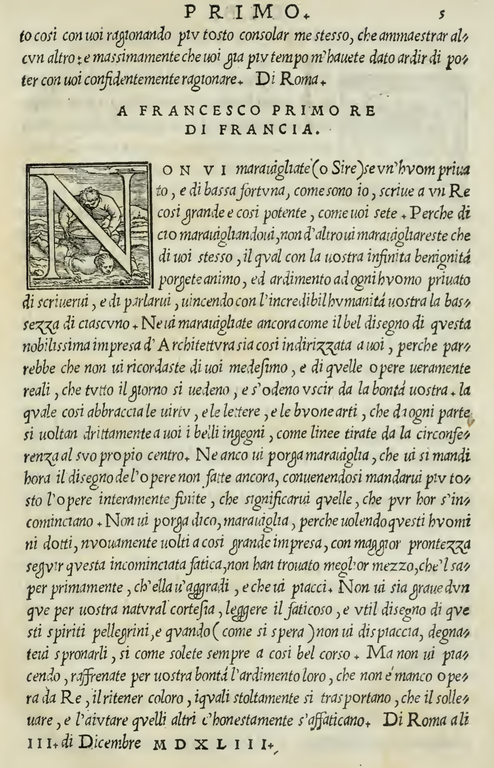 PRIMO. 5
to cosi con uoi ragionando piv tosto consolar me stesso, che ammaestrar al-
cvn altro: e massimamente che uoi gia piv tempo m'hauete dato ardir di po-
ter con uoi confidentemente ragionare. Di Roma.
A FRANCESCO PRIMO RE
DI FRANCIA.
NON VI marauigliate (o Sire) se vn'hvom priua
to, e di bassa fortvna, come sono io, scriue a vn Re
cosi grande e cosi potente, come uoi sete. Perche di
cio marauigliandoui, non d'altro ui marauigliareste che
di uoi stesso, il qval con la uostra infinita benignità
porgete animo, ed ardimento ad ogni hvomo priuato
di scriuerui, e di parlarui, uincendo con l'incredibil hvmanità uostra la bas-
sezza di ciascvno. Ne ui marauigliate ancora come il bel disegno di qvesta
nobilissima impresa d'Architettvra sia cosi indirizzata a uoi, perche par-
rebbe che non ui ricordaste di uoi medesimo, e di qvelle opere ueramente
reali, che tvtto il giorno si uedeno, e s'odeno vscir da la bontà uostra. la
qvale cosi abbraccia le uirtv, e le lettere, e le bvone arti, che d'ogni parte
si uoltan drittamente a uoi i belli ingegni, come linee tirate da la circonfe-
renza al svo proprio centro. Ne anco ui porga marauiglia, che ui si mandi
hora il disegno del'opere non fatte ancora, conuenendosi mandarui piv to-
sto l'opere interamente finite, che significarui qvelle, che pvr hor s'in-
cominciano. Non ui porga dico, marauiglia, perche uolendo qvesti hvomi
ni dotti, nvouamente uolti a cosi grande impresa, con maggior prontezza
segvir qvesta incominciata fatica, non han trouato meglior mezzo, che'l sa-
per primamente, ch'ella u'aggradi, e che ui piacci. Non ui sia graue dvn
qve per uostra natvral cortesia, leggere il faticoso, e vtil disegno di qve
sti spiriti pellegrini, e qvando (come si spera) non ui dispiaccia, degna-
teui spronarli, si come solete sempre a cosi bel corso. Ma non ui pia-
cendo, raffrenate per uostra bontà l'ardimento loro, che non è manco ope-
ra da Re, il ritener coloro, i qvali stoltamente si trasportano, che il solle-
uare, e l'aivtare qvelli altri c'honestamente s'affaticano. Di Roma a li
III. di Dicembre MDXLIII.